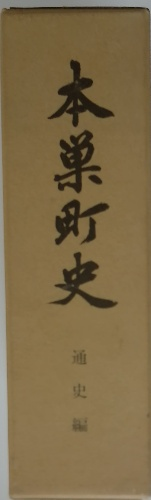 本巣町史
通史編